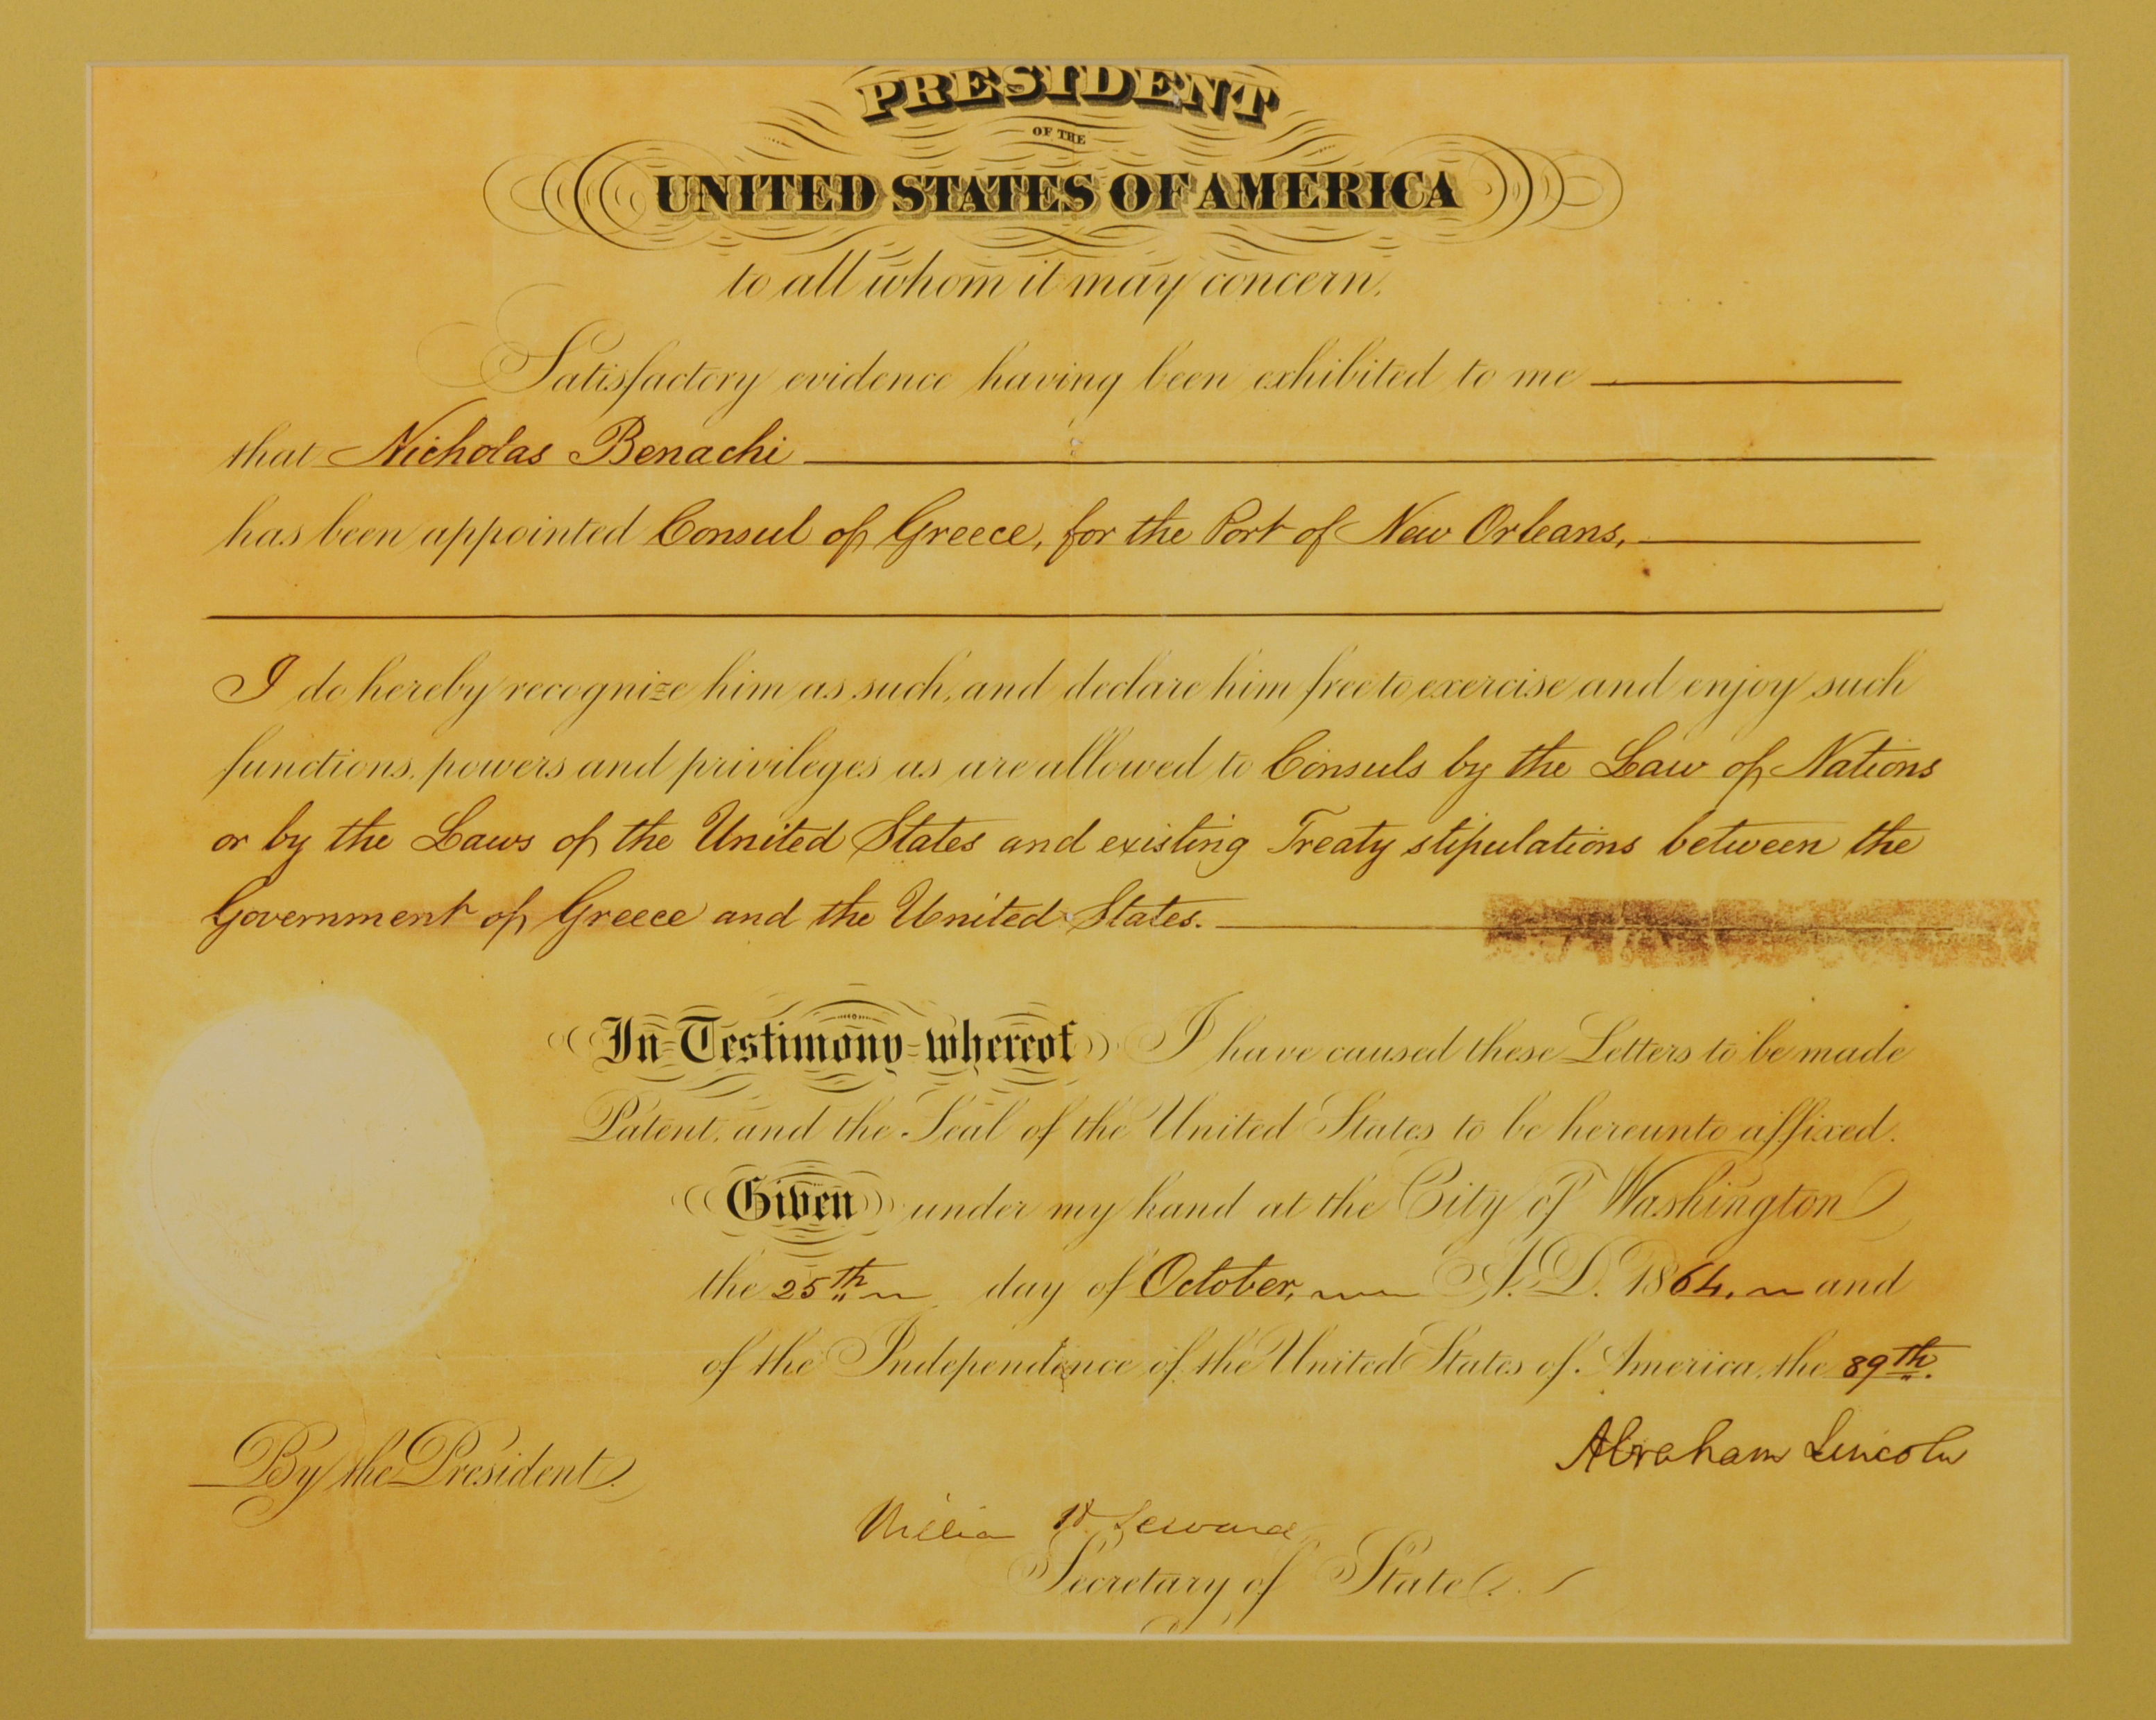 PRESIDENT
OF THE
UNITED STATES OF AMERICA
to all whom it may concern.
Satisfactory evidence having been exhibited to me
that Nicholas Benachi
has been appointed Consul of Greece, for the Port of New Orleans,
I do hereby recognize him as such, and declare him free to exercise and enjoy such
functions, powers and privileges as are allowed to Consuls by the Law of Nations
or by the Laws of the United States and existing Treaty stipulations between the
Government of Greece and the United States.
In Testimony whereof I have caused these Letters to be made
Patent, and the Seal of the United States to be hereunto affixed.
Given under my hand at the City of Washington
the 25th day of October, A.D. 1864, and
of the Independence of the United States of America, the 89th.
Abraham Lincoln
By the President
William H Seward
Secretary of State.